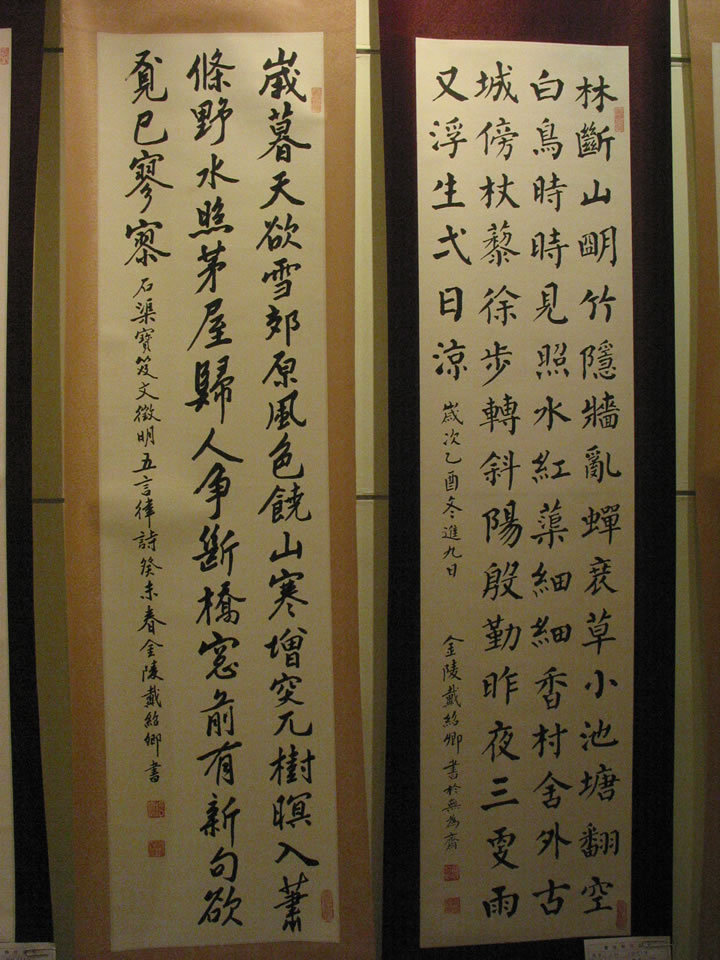 林斷山朙竹隱牆亂蟬衰草小池塘翻空
白鳥時時見照水紅蕖細細香村舍外古
城傍杖藜徐步轉斜陽殷勤昨夜三更雨
又浮生弌日涼 歲次乙酉冬進九日 金陵戴紹卿書於無為齋
歲暮天欲雪郊原風色饒山寒增突兀樹暝入蕭
條野水照茅屋歸人爭斷橋窓前有新句欲
覓已寥寥 石渠寶笈文徵明五言律詩癸未春金陵戴紹卿書